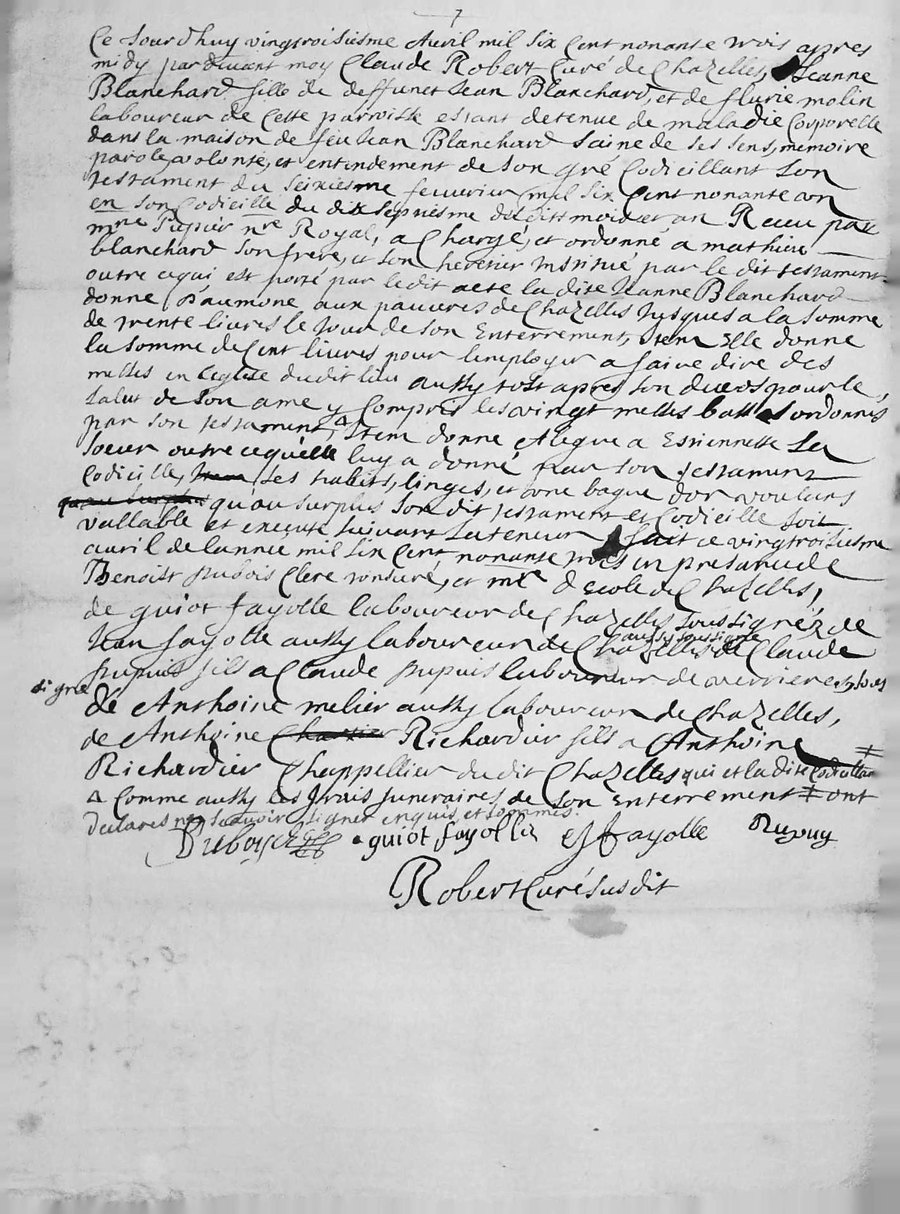 7
Ce Jourdhuy vingtroisiesme Avril mil six Cent nonante trois apres
midy pardevant moy Claude Robert Curé de Chazelles, Jeanne
Blanchard fille de deffunct Jean Blanchard, et de flurie molin
laboureur de Cette parroisse estant detenue de maladie Corporelle
dans la maison de feu Jean Blanchard saine de ses sens, mémoire
parole, volonté, et entendement de son gré Codicillant son
testament du seixiesme feuvrier mil six Cent nonante
en son Codicille du dit septiesme du dit mois et an Receu par
mtre Pupier nre Royal, a Chargé, et ordonné a mathieu
blanchard son frere, et son heretier institué par le dit testament
outre cequi est porté par ledit acte la dite Jeanne Blanchard
donne d'aumone aux pauvres de Chazelles Jusques a la somme
de trente livres le Jour de son Enterrement, Item Elle donne
la somme de Cent livres pour lemployer a faire dire des
messes en leglise dudit lieu aussy tost apres son deces pour le
salut de son ame y Compris les vingt messes basses ordonnés
par son testament, Δ Item donne et legue a Estiennette sa
soeur outre cequelle luy a donné par son testament
Codicille, ses habits, linges, et une bague dor voulens
qu'au surplus son dit testament et Codicille soit
vallable et execute suivant sa teneur fait ce vingtroisiesme
avril de lannée mil six Cent nonante trois en presance de
Benoist Dubois Clerc tonsuré, et mre d'Ecole de Chazelles,
de guiot fayolle laboureur de Chazelles soussignéz de
Jean fayolle aussy laboureur de Chazelles aussy soussigné de Claude
Dupuis fils a Claude Dupuis laboureur de verrieres
signé
de Anthoine melier aussy laboureur de Chazelles,
de Anthoine Richardier fils a Anthoine ‡
Richardier Chappellier du dit Chazelles qui et la dite Codicillante
Δ Comme aussy les frais funeraires de son Enterrement ‡ ont
declarés ne sçavoir signer enquis, et sommés.
Dubois Clerc guiot fayolle J fayolle Dupuy
Robert Curé susdit